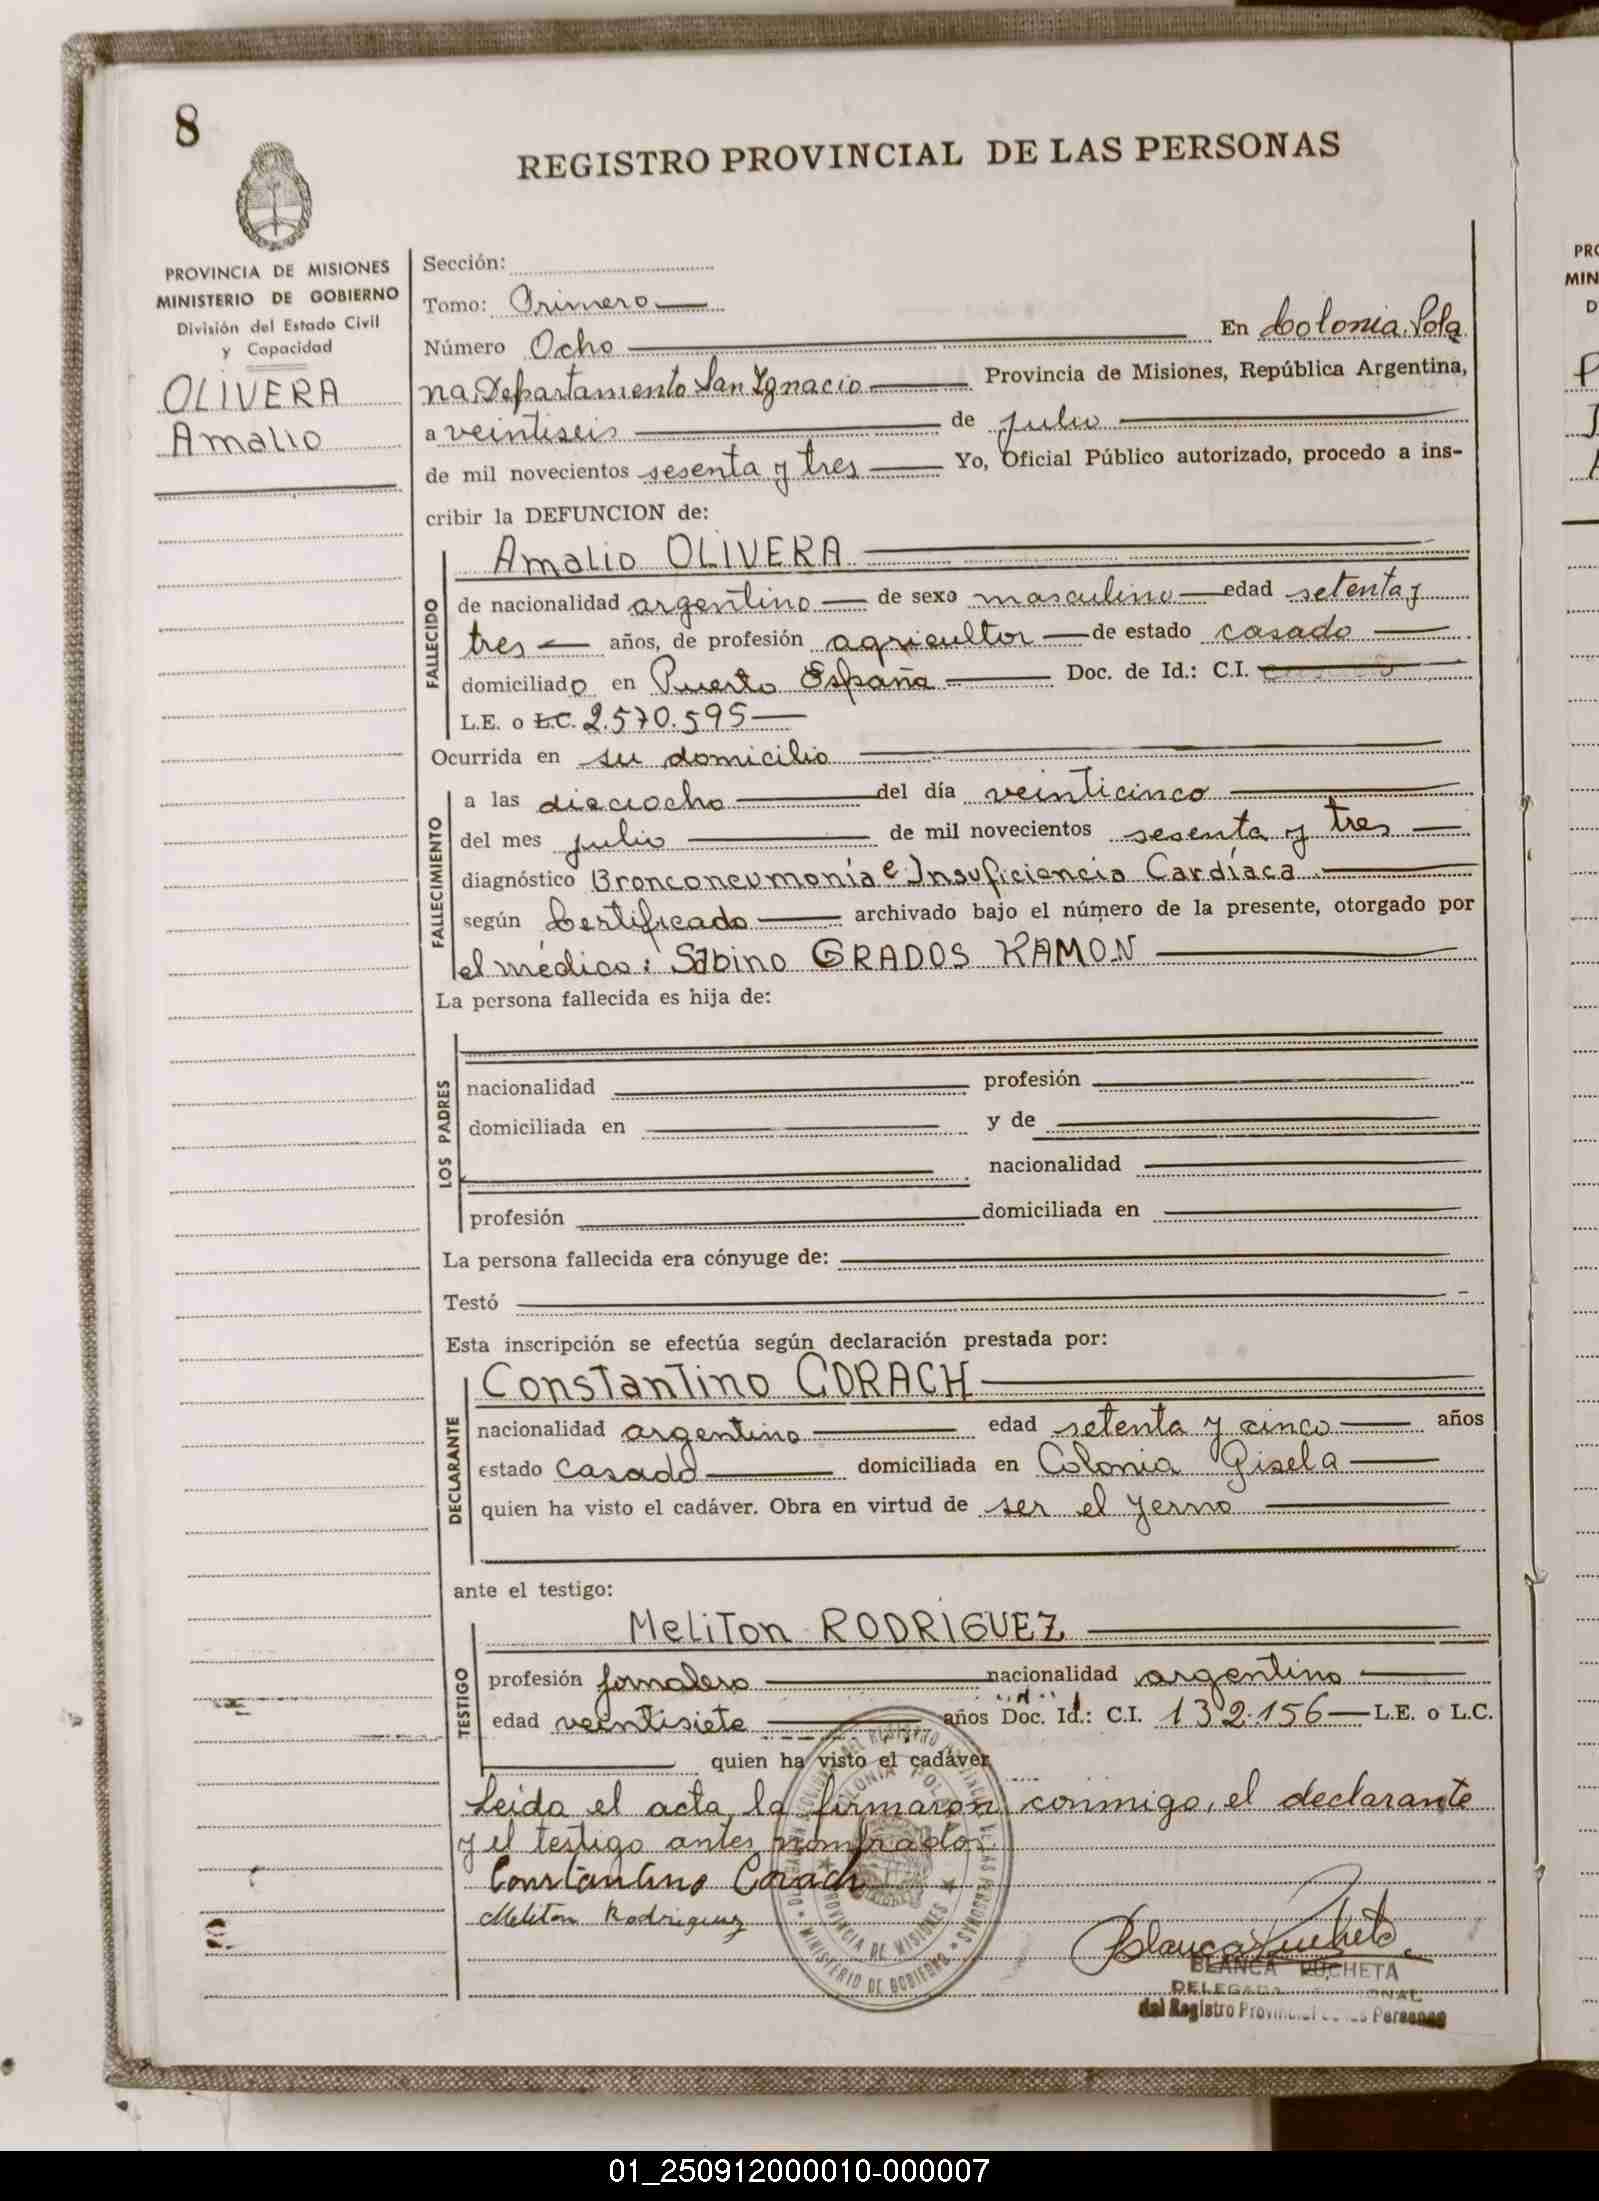 8
REGISTRO PROVINCIAL DE LAS PERSONAS
PROVINCIA DE MISIONES
MINISTERIO DE GOBIERNO
División del Estado Civil
y Capacidad
OLIVERA
Amalio
Sección:
Tomo: Primero
Número Ocho En Colonia Pola
na, Departamento San Ignacio Provincia de Misiones, República Argentina,
a veintiseis de julio
de mil novecientos sesenta y tres Yo, Oficial Público autorizado, procedo a ins-
cribir la DEFUNCION de:
FALLECIDO
Amalio OLIVERA
de nacionalidad argentino de sexo masculino edad setenta y
tres años, de profesión agricultor de estado casado
domiciliado en Puerto España Doc. de Id.: C.I.
L.E. o L.C. 2.570.595
Ocurrida en su domicilio
FALLECIMIENTO
a las dieciocho del día veinticinco
del mes julio de mil novecientos sesenta y tres
diagnóstico Bronconeumonia e Insuficiencia Cardíaca
según Certificado archivado bajo el número de la presente, otorgado por
el médico: Sabino GRADOS RAMON
La persona fallecida es hija de:
LOS PADRES
nacionalidad profesión
domiciliada en y de
nacionalidad
profesión domiciliada en
La persona fallecida era cónyuge de:
Testó
Esta inscripción se efectúa según declaración prestada por:
DECLARANTE
Constantino CORACH
nacionalidad argentino edad setenta y cinco años
estado casado domiciliada en Colonia Gisela
quien ha visto el cadáver. Obra en virtud de ser el yerno
ante el testigo:
TESTIGO
Meliton RODRIGUEZ
profesión jornalero nacionalidad argentino
edad veentisiete años Doc. Id.: C.I. 132.156 L.E. o L.C.
quien ha visto el cadáver
Leida el acta, la firmaron conmigo, el declarante
y el testigo antes nombrados.
Constantino Corach
Meliton Rodriguez
COLONIA POLANA
PROVINCIA DE MISIONES
MINISTERIO DE GOBIERNO
Blanca Rucheta
BLANCA RUCHETA
del Registro Provincial de las Personas
01_250912000010-000007